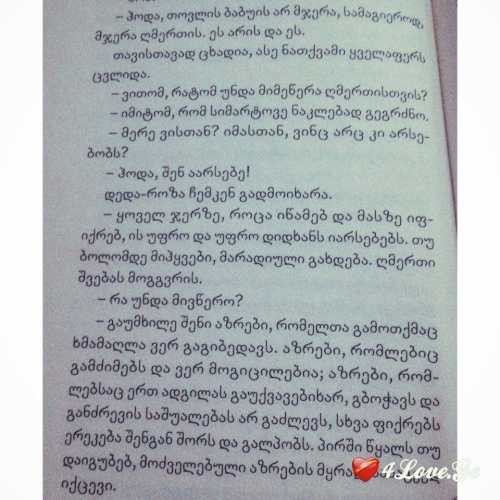 – ჰოდა, თოვლის ბაბუის არ მჯერა, სამაგიეროდ,
მჯერა ღმერთის. ეს არის და ეს.
თავისთავად ცხადია, ასე ნათქვამი ყველაფერს
ცვლიდა.
– ვითომ, რატომ უნდა მიმეწერა ღმერთისთვის?
– იმიტომ, რომ სიმარტოვე ნაკლებად გეგრძნო.
– მერე ვისთან? იმასთან, ვინც არც კი არსე-
ბობს?
– ჰოდა, შენ აარსებე!
დედა-როზა ჩემკენ გადმოიხარა.
– ყოველ ჯერზე, როცა იწამებ და მასზე იფ-
იქრებ, ის უფრო და უფრო დიდხანს იარსებებს. თუ
ბოლომდე მიჰყვები, მარადიული გახდება. ღმერთი
შვებას მოგგვრის.
– რა უნდა მივწერო?
– გაუმხილე შენი აზრები, რომელთა გამოთქმაც
ხმამაღლა ვერ გაგიბედავს. აზრები, რომლებიც
გამძიმებს და ვერ მოგიცილებია; აზრები, რომ-
ლებსაც ერთ ადგილას გაუქვავებიხარ, გბოჭავს და
განძრევის საშუალებას არ გაძლევს, სხვა ფიქრებს
ერეკება შენგან შორს და გალპობს. პირში წყალს თუ
დაიგუბებ, მოძველებული აზრების
იქცევი.
4Love.Ge